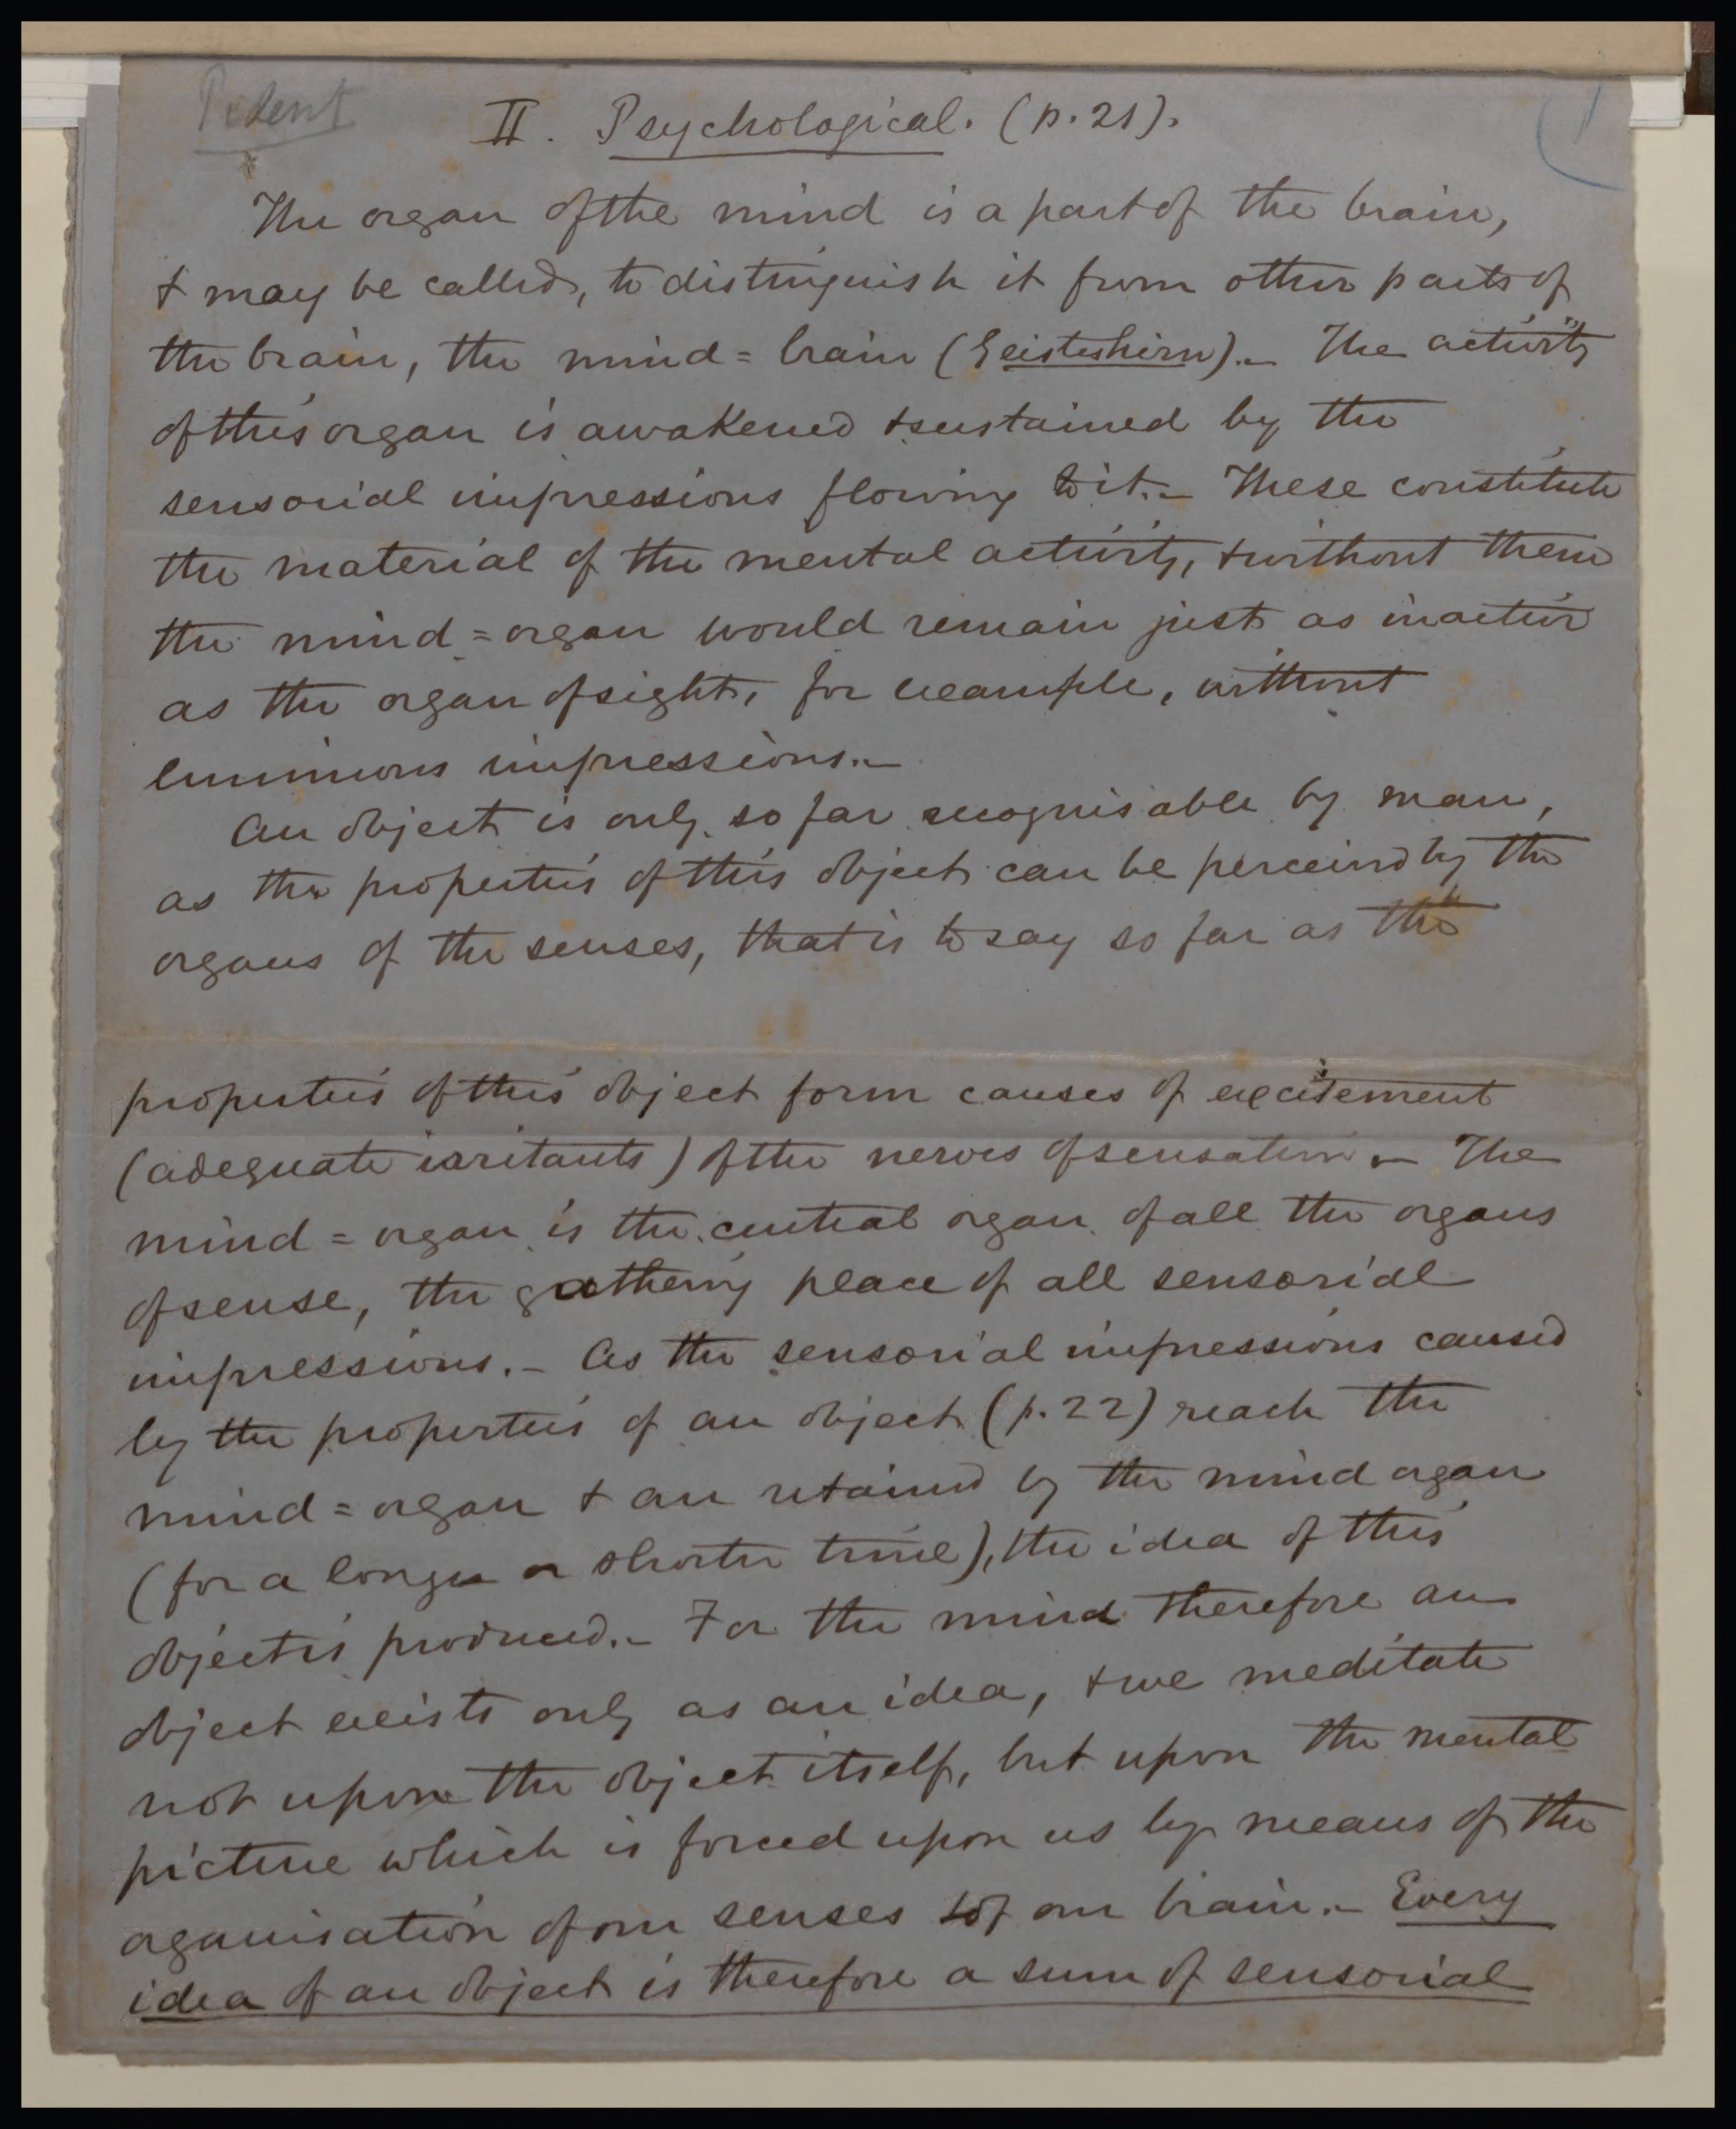 II. Psychological. (p. 21).
The organ of the mind is a part of the brain,
& may be called, to distinguish it from other parts of
the brain, the mind = brain (Geisteshirn).– The activity
of this organ is awakened & sustained by the
sensorial impressions flowing to it.– These constitute
the material of the mental activity, & without them
the mind = organ would remain just as inactive
as the organ of sight, for example, without
luminous impressions.–
An object is only so far recognisable by man,
as the properties of this object can be perceived by the
organs of the senses, that is to say so far as the
properties of this object form causes of excitement
(adequate irritants) of the nerves of sensation.– The
mind = organ is the central organ of all the organs
of sense, the gathering place of all sensorial
impressions.– As the sensorial impressions caused
by the properties of an object (p. 22) reach the
mind = organ & are retained by the mind organ
(for a longer or shorter time), the idea of this
object is produced.– For the mind therefore an
object exists only as an idea, & we meditate
not upon the object itself, but upon the mental
picture which is forced upon us by means of the
organisation of our senses & of our brain.– Every
idea of an object is therefore a sum of sensorial